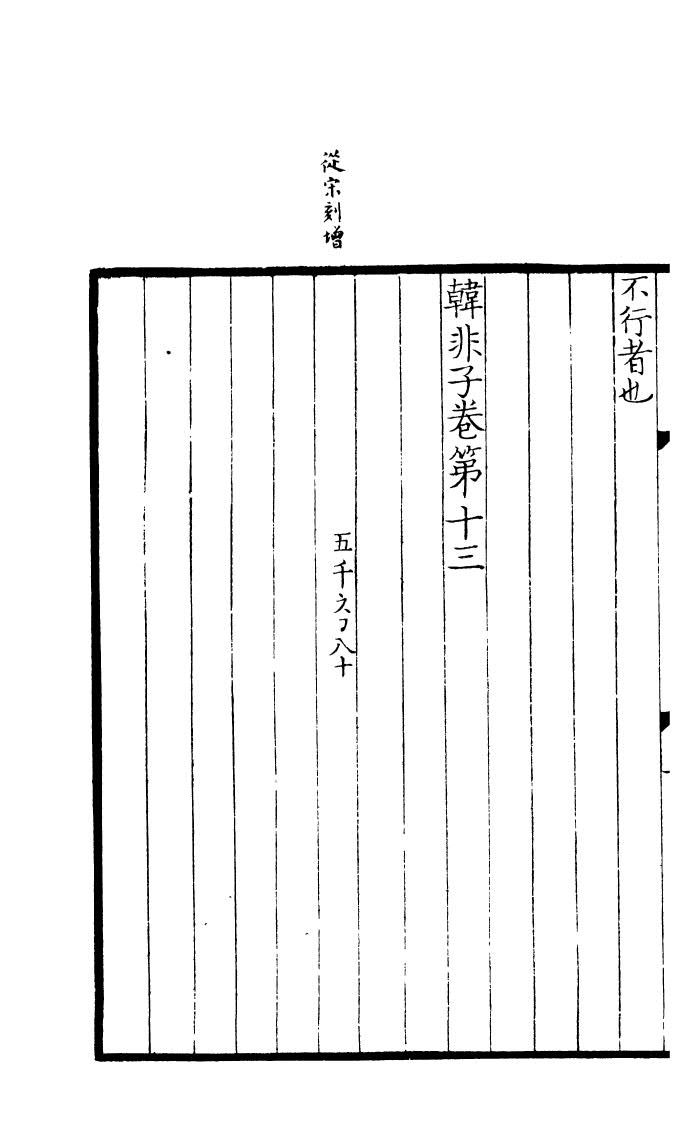 不行者也
韓非子卷第十三
從宋刻增
五千六㇆八十